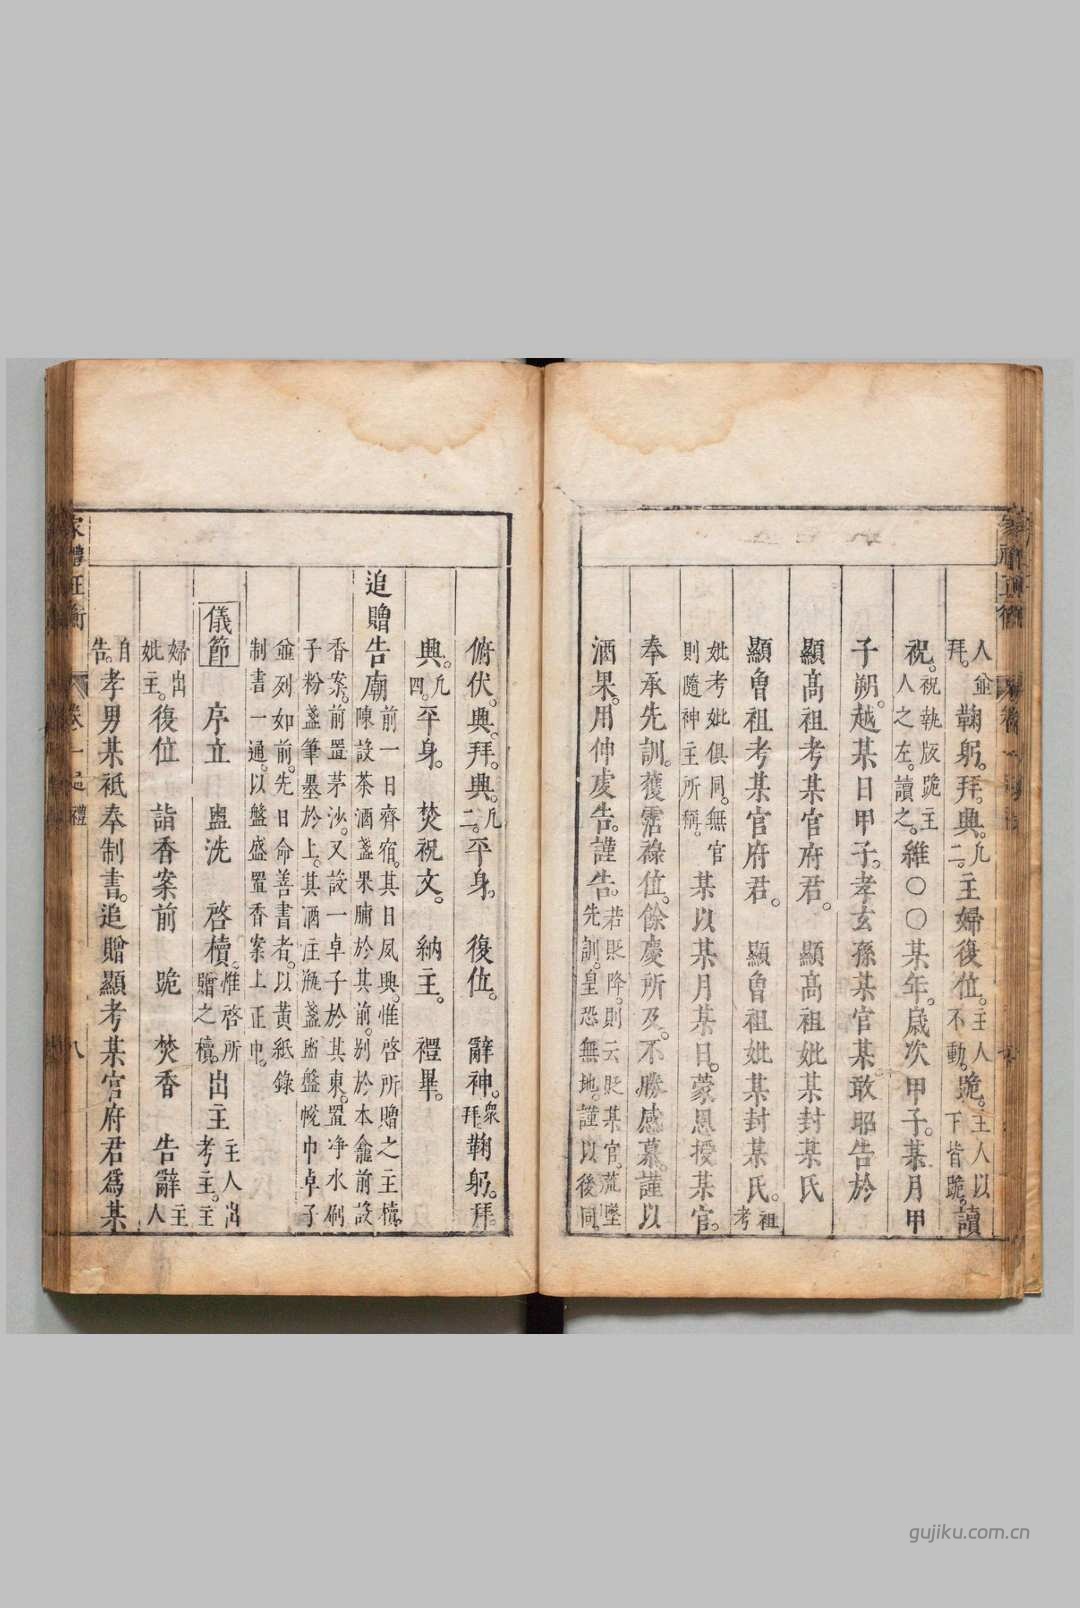 人並拜。鞠躬。拜。興。凡二。主婦復位。主人不動。跪。主人以下皆跪。讀
祝。祝執版跪主人之左。讀之。維〇〇某年。歲次甲子。某月甲
子朔。越某日甲子。孝玄孫某官某敢昭告於
顯高祖考某官府君。 顯高祖妣某封某氏
顯曾祖考某官府君。 顯曾祖妣某封某氏。祖考
妣考妣俱同。無官則隨神主所稱。某以某月某日。蒙恩授某官。
奉承先訓。獲霑祿位。餘慶所及。不勝感慕。謹以
酒果。用伸虔告。謹告。若貶降。則云貶某官。荒墜先訓。皇恐無地。謹以後同。
俯伏。興。拜。興。凡二。平身。 復位。 辭神。衆拜。鞠躬。拜
興。凡四。平身。 焚祝文。 納主。 禮畢。
追贈告廟前一日齊宿。其日夙興。惟啓所贈之主櫝。陳設茶酒盞果脯於其前。别於本龕前設
香案。前置茅沙。又設一卓子於其東。置净水
子粉盞筆墨於上。其酒注瓶盞盥盤帨巾卓子
並列如前。先日命善書者。以黃紙錄
制書一通。以盤盛置香案上正中。
儀節 序立 盥洗 啓櫝。惟啓所贈之櫝。出主主人出考主。主
婦出妣主。復位 詣香案前 跪 焚香 告辭主人
自告。孝男某祗奉制書。追贈顯考某官府君爲某
家禮正衡 卷一 通禮 八
gujiku.com.cn